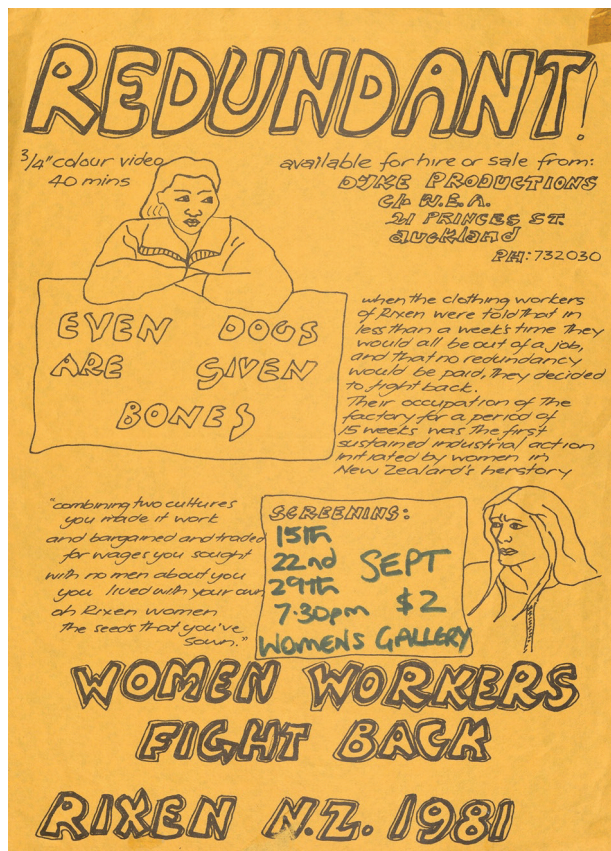 REDUNDANT!
3/4" colour video
40 mins
available for hire or sale from:
DYKE PRODUCTIONS
c/o N.E.A.
21 PRINCES ST.
auckland
PH: 732030
EVEN DOGS
ARE GIVEN
BONES
when the clothing workers
of Rixen were told that in
less than a week's time they
would all be out of a job,
and that no redundancy
would be paid, they decided
to fight back.
Their occupation of the
factory for a period of
15 weeks was the first
sustained industrial action
initiated by women in
New Zealand's herstory
"combining two cultures
you made it work
and bargained and traded
for wages you sought
with no men about you
you lived with your own
ah Rixen women
the seeds that you've
sown."
SCREENING:
15th
22nd SEPT
29th
7.30pm $2
WOMENS GALLERY
WOMEN WORKERS
FIGHT BACK
RIXEN N.Z. 1981